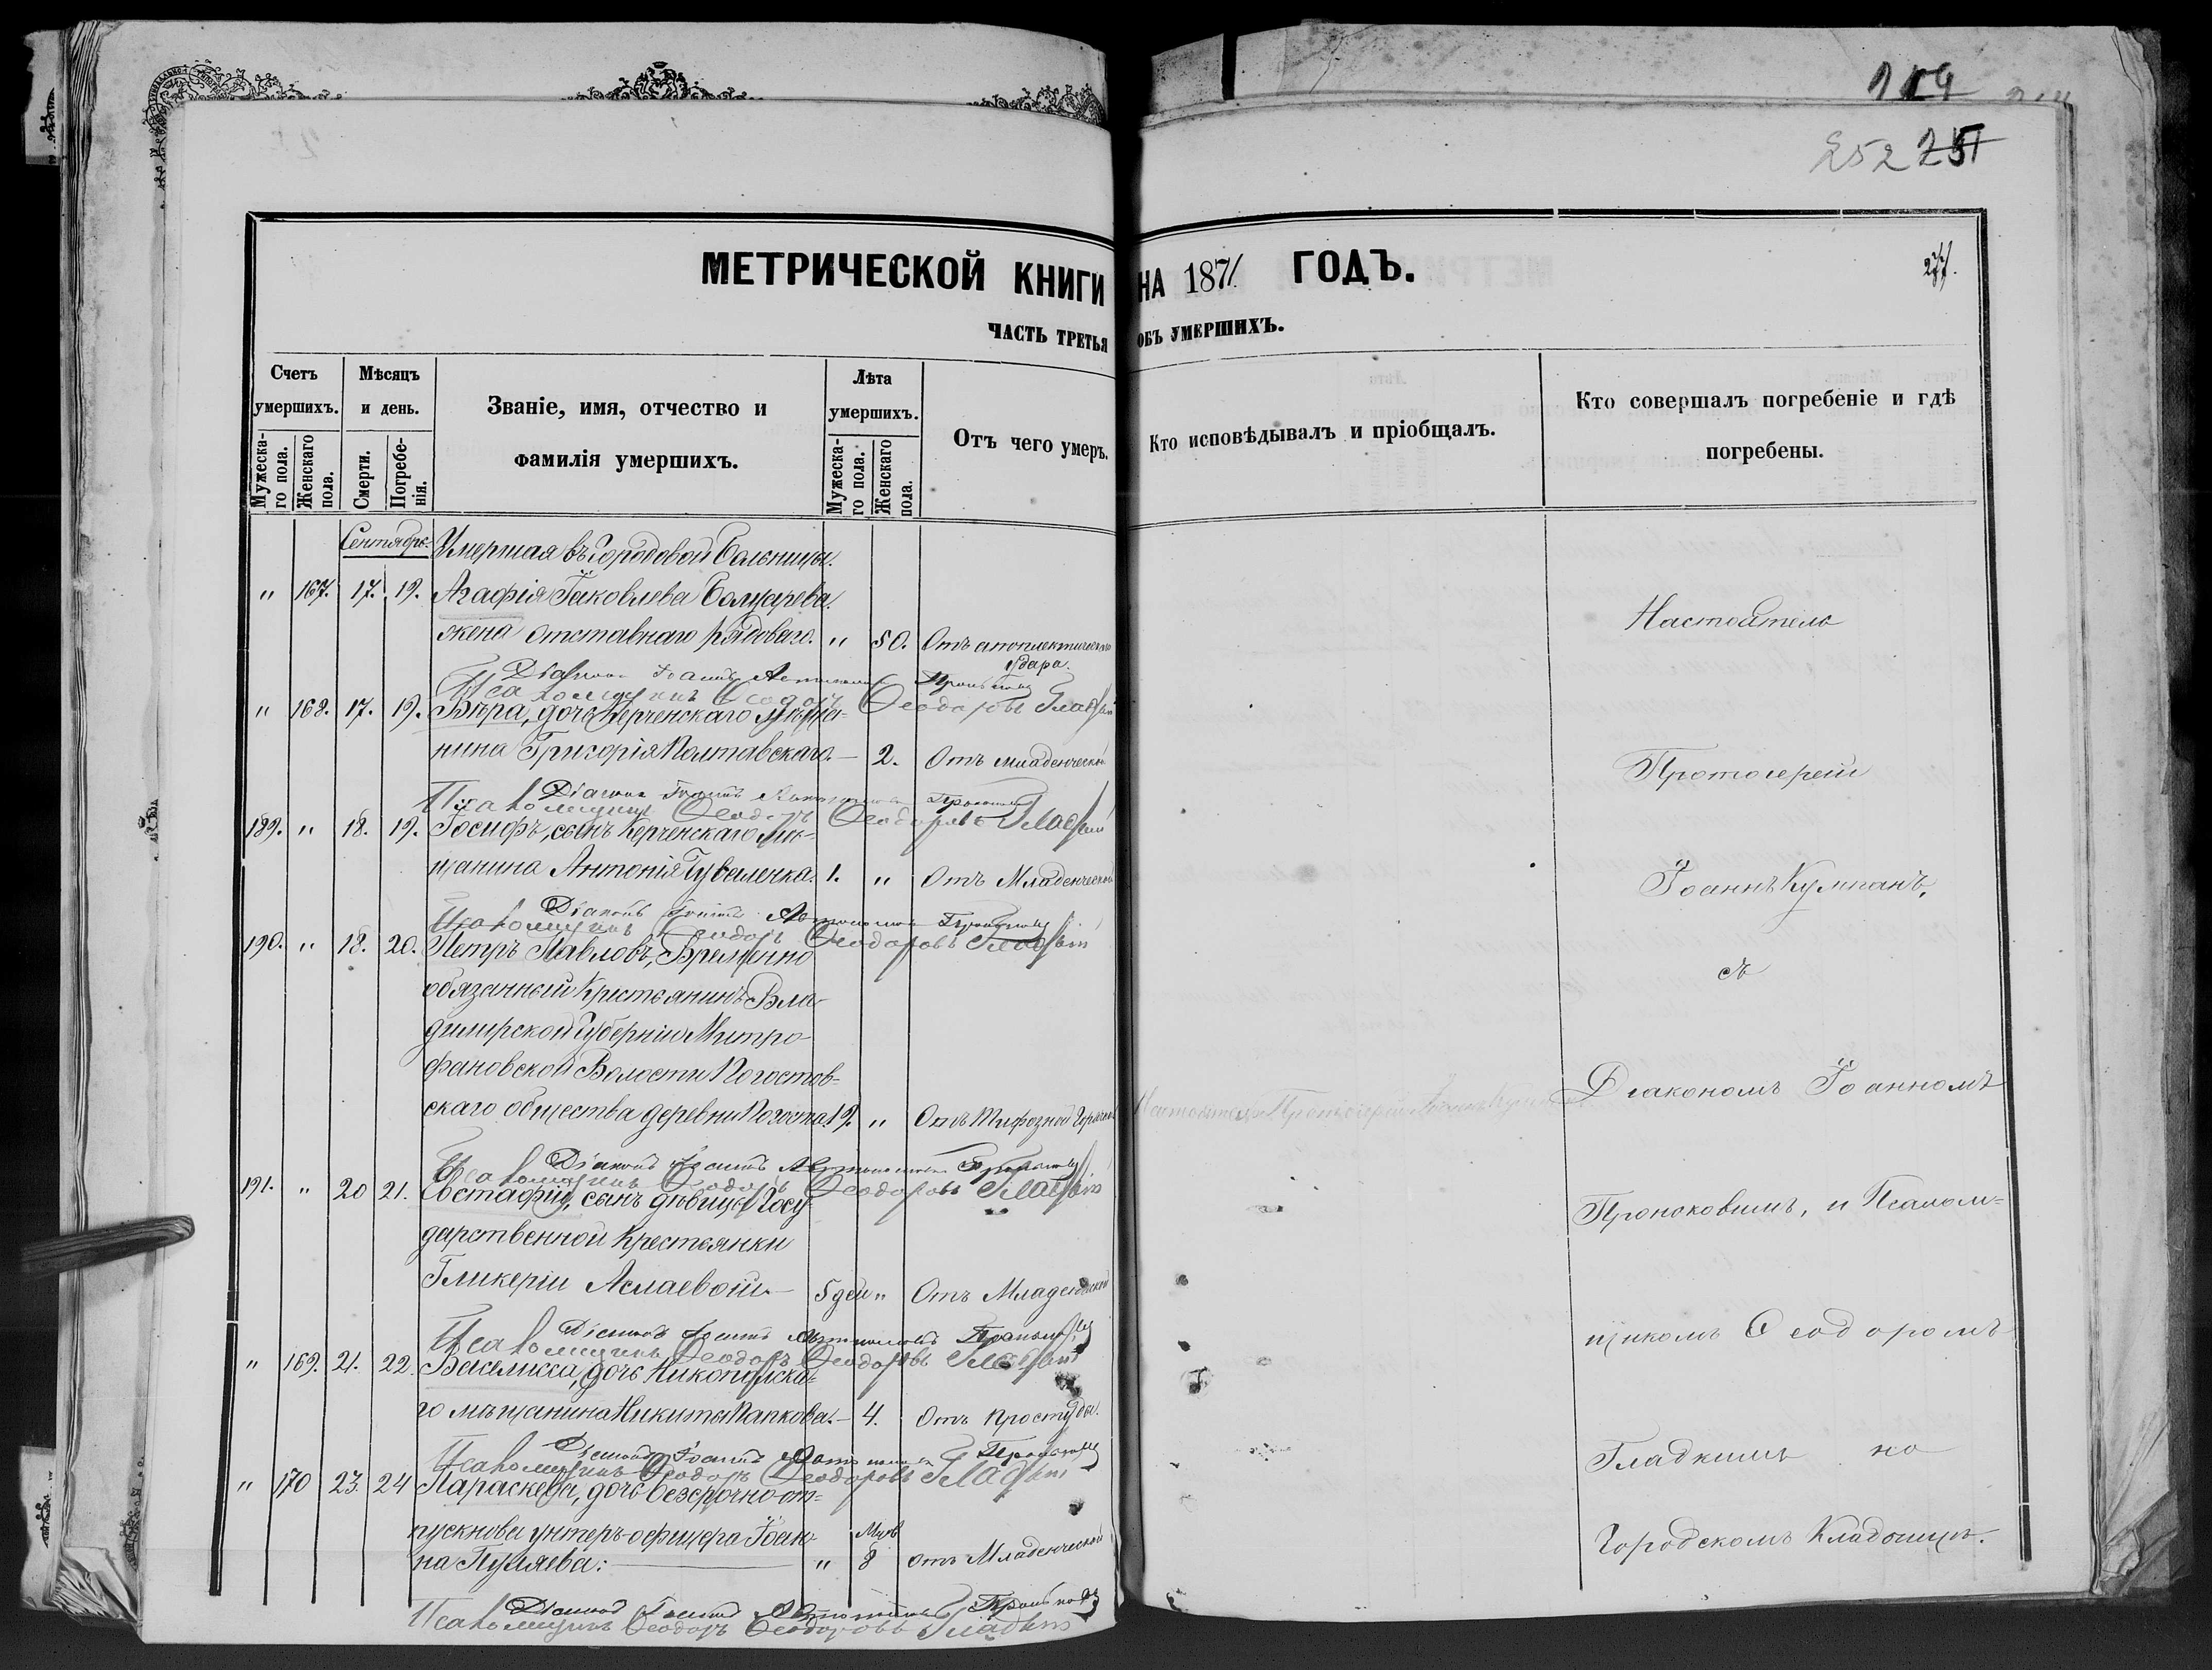 252 251
МЕТРИЧЕСКОЙ КНИГИ НА 1871 ГОДЪ.
ЧАСТЬ ТРЕТЬЯ ОБЪ УМЕРШИХЪ.
Счетъ умершихъ.
Мужеска-го пола.
Женскаго пола.
Мѣсяцъ и день.
Смерти.
Погребе-нія.
Званіе, имя, отчество и
фамилія умершихъ.
Лѣта умершихъ.
Мужеска-го пола.
Женскаго пола.
Отъ чего умеръ.
Кто исповѣдывалъ и пріобщалъ.
Кто совершалъ погребеніе и гдѣ
погребены.
Сентябрь Умершая въ Городовой Больницы.
" 167. 17. 19. Агафія Іаковлева
жена отставнаго Рядоваго. " 50. Отъ апоплектическаго
удара.
Діаконъ Іоаннъ
Псаломщикъ Ѳеодоръ Ѳеодоровъ Гладкій
" 168. 17. 19. Вѣра, дочь Керченскаго мѣща-
нина Григорія Полтавскаго. — 2. Отъ младенческой
Діаконъ Іоаннъ
Псаломщикъ Ѳеодоръ Ѳеодоровъ Гладкій
189. " 18. 19. Іосифъ, сынъ Керченскаго мѣ-
щанина Антонія 1. " Отъ Младенческой
Діаконъ Іоаннъ
Псаломщикъ Ѳеодоръ Ѳеодоровъ Гладкій
190. " 18. 20. Петръ Павловъ, Временно
обязанный Крестьянинъ Вла-
димирской Губерніи Митро-
фановской Волости Погостов-
скаго общества деревни Погоста. 19. " Отъ Тифозной Горячки
Діаконъ Іоаннъ
Псаломщикъ Ѳеодоръ Ѳеодоровъ Гладкій
191. " 20 21. Евстафій, сынъ дѣвицы Госу-
дарственной Крестьянки
Гликеріи Аслаевой — 5 дей " Отъ Младенческой
Діаконъ Іоаннъ
Псаломщикъ Ѳеодоръ Ѳеодоровъ Гладкій
" 169. 21. 22. Васслисса, дочь Никопольска-
го мѣщанина Никиты Папкова. — 4. Отъ простуды.
Діаконъ Іоаннъ
Псаломщикъ Ѳеодоръ Ѳеодоровъ Гладкій
" 170 23. 24 Параскева, дочь безсрочно-от-
пускнова унтеръ-офицера Іоан-
на Пуляева: " 8 отъ Младенческой
Діаконъ Іоаннъ
Псаломщикъ Ѳеодоръ Ѳеодоровъ Гладкій
Настоятель
Протоіерей
Іоаннъ Кумпанъ,
съ
Діакономъ Іоанномъ
и Псалом-
щикомъ Ѳеодоромъ
Гладкимъ на
Городскомъ Кладбищѣ.